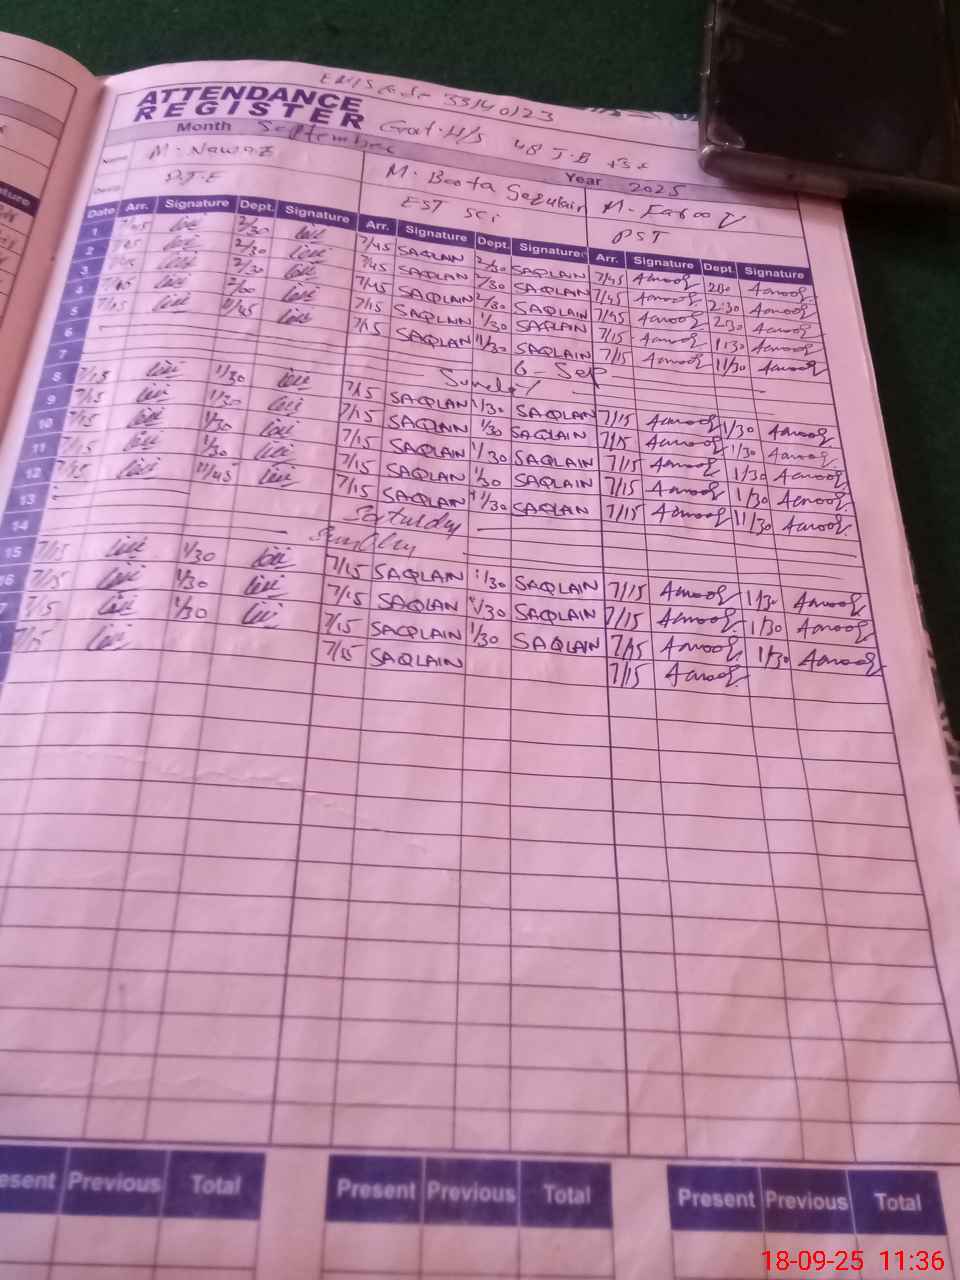 EMIS Code 33140123
ATTENDANCE
REGISTER Govt. H/S 48 J.B
Month September Year 2025
Name M. Nawaz M. Boota Saqulain M. Farooq
Desig. EST Sci PST
Date Arr. Signature Dept. Signature Arr. Signature Dept. Signature Arr. Signature Dept. Signature
1 7/45 2/30 7/45 SAQLAIN 2/30 SAQLAIN 7/45 Amooq 2:30 Amooq
2 7/45 2/30 7/45 SAQLAIN 2/30 SAQLAIN 7/45 Amooq 2:30 Amooq
3 7/45 2/30 7/45 SAQLAIN 2/30 SAQLAIN 7/45 Amooq 2:30 Amooq
4 7/15 7/15 SAQLAIN 1/30 SAQLAIN 7/15 Amooq 1:30 Amooq
5 7/15 11/45 7/15 SAQLAIN 11/30 SAQLAIN 7/15 Amooq 11/30 Amooq
6 6-Sep
7 Sunday
8 7/15 1/30 7/15 SAQLAN 1/30 SAQLAIN 7/15 Amooq 1/30 Amooq
9 7/15 1/30 7/15 SAQLAN 1/30 SAQLAIN 7/15 Amooq 1/30 Amooq
10 7/15 1/30 7/15 SAQLAIN 1/30 SAQLAIN 7/15 Amooq 1/30 Amooq
11 7/15 1/30 7/15 SAQLAIN 1/30 SAQLAIN 7/15 Amooq 1/30 Amooq
12 7/15 11/45 7/15 SAQLAIN 11/30 SAQLAIN 7/15 Amooq 11/30 Amooq
13 Saturday
14 Sunday
15 7/15 1/30 7/15 SAQLAIN 1/30 SAQLAIN 7/15 Amooq 1/30 Amooq
16 7/15 1/30 7/15 SAQLAN 1/30 SAQLAIN 7/15 Amooq 1/30 Amooq
7 7/15 1/30 7/15 SACPLAIN 1/30 SAQLAIN 7/15 Amooq 1/30 Amooq
7/15 7/15 SAQLAIN 7/15 Amooq
esent Previous Total Present Previous Total Present Previous Total
18-09-25 11:36